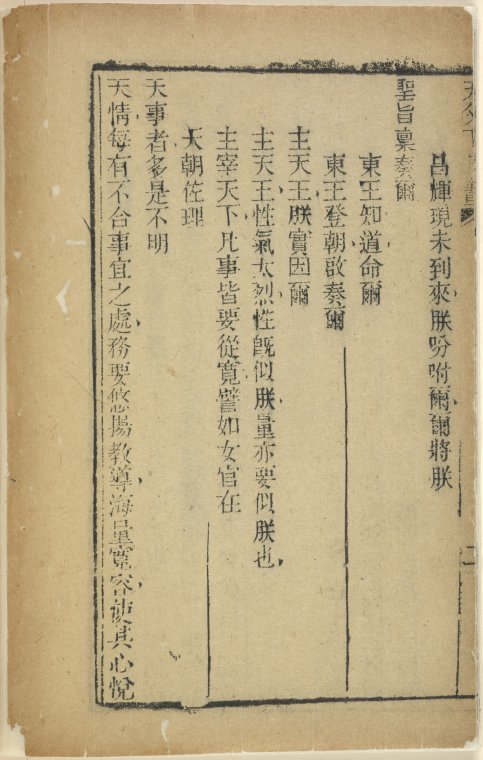 昌輝現未到來朕吩咐爾爾將朕
聖旨稟奏爾
東王知道命爾
東王登朝啟奏爾
主天王朕實因爾
主天王性氣太烈性既似朕量亦要似朕也
主宰天下凡事皆要從寬譬如女官在
天朝佐理
天事者多是不明
天情每有不合事宜之處務要悠揚教導海量寬容使其心悅